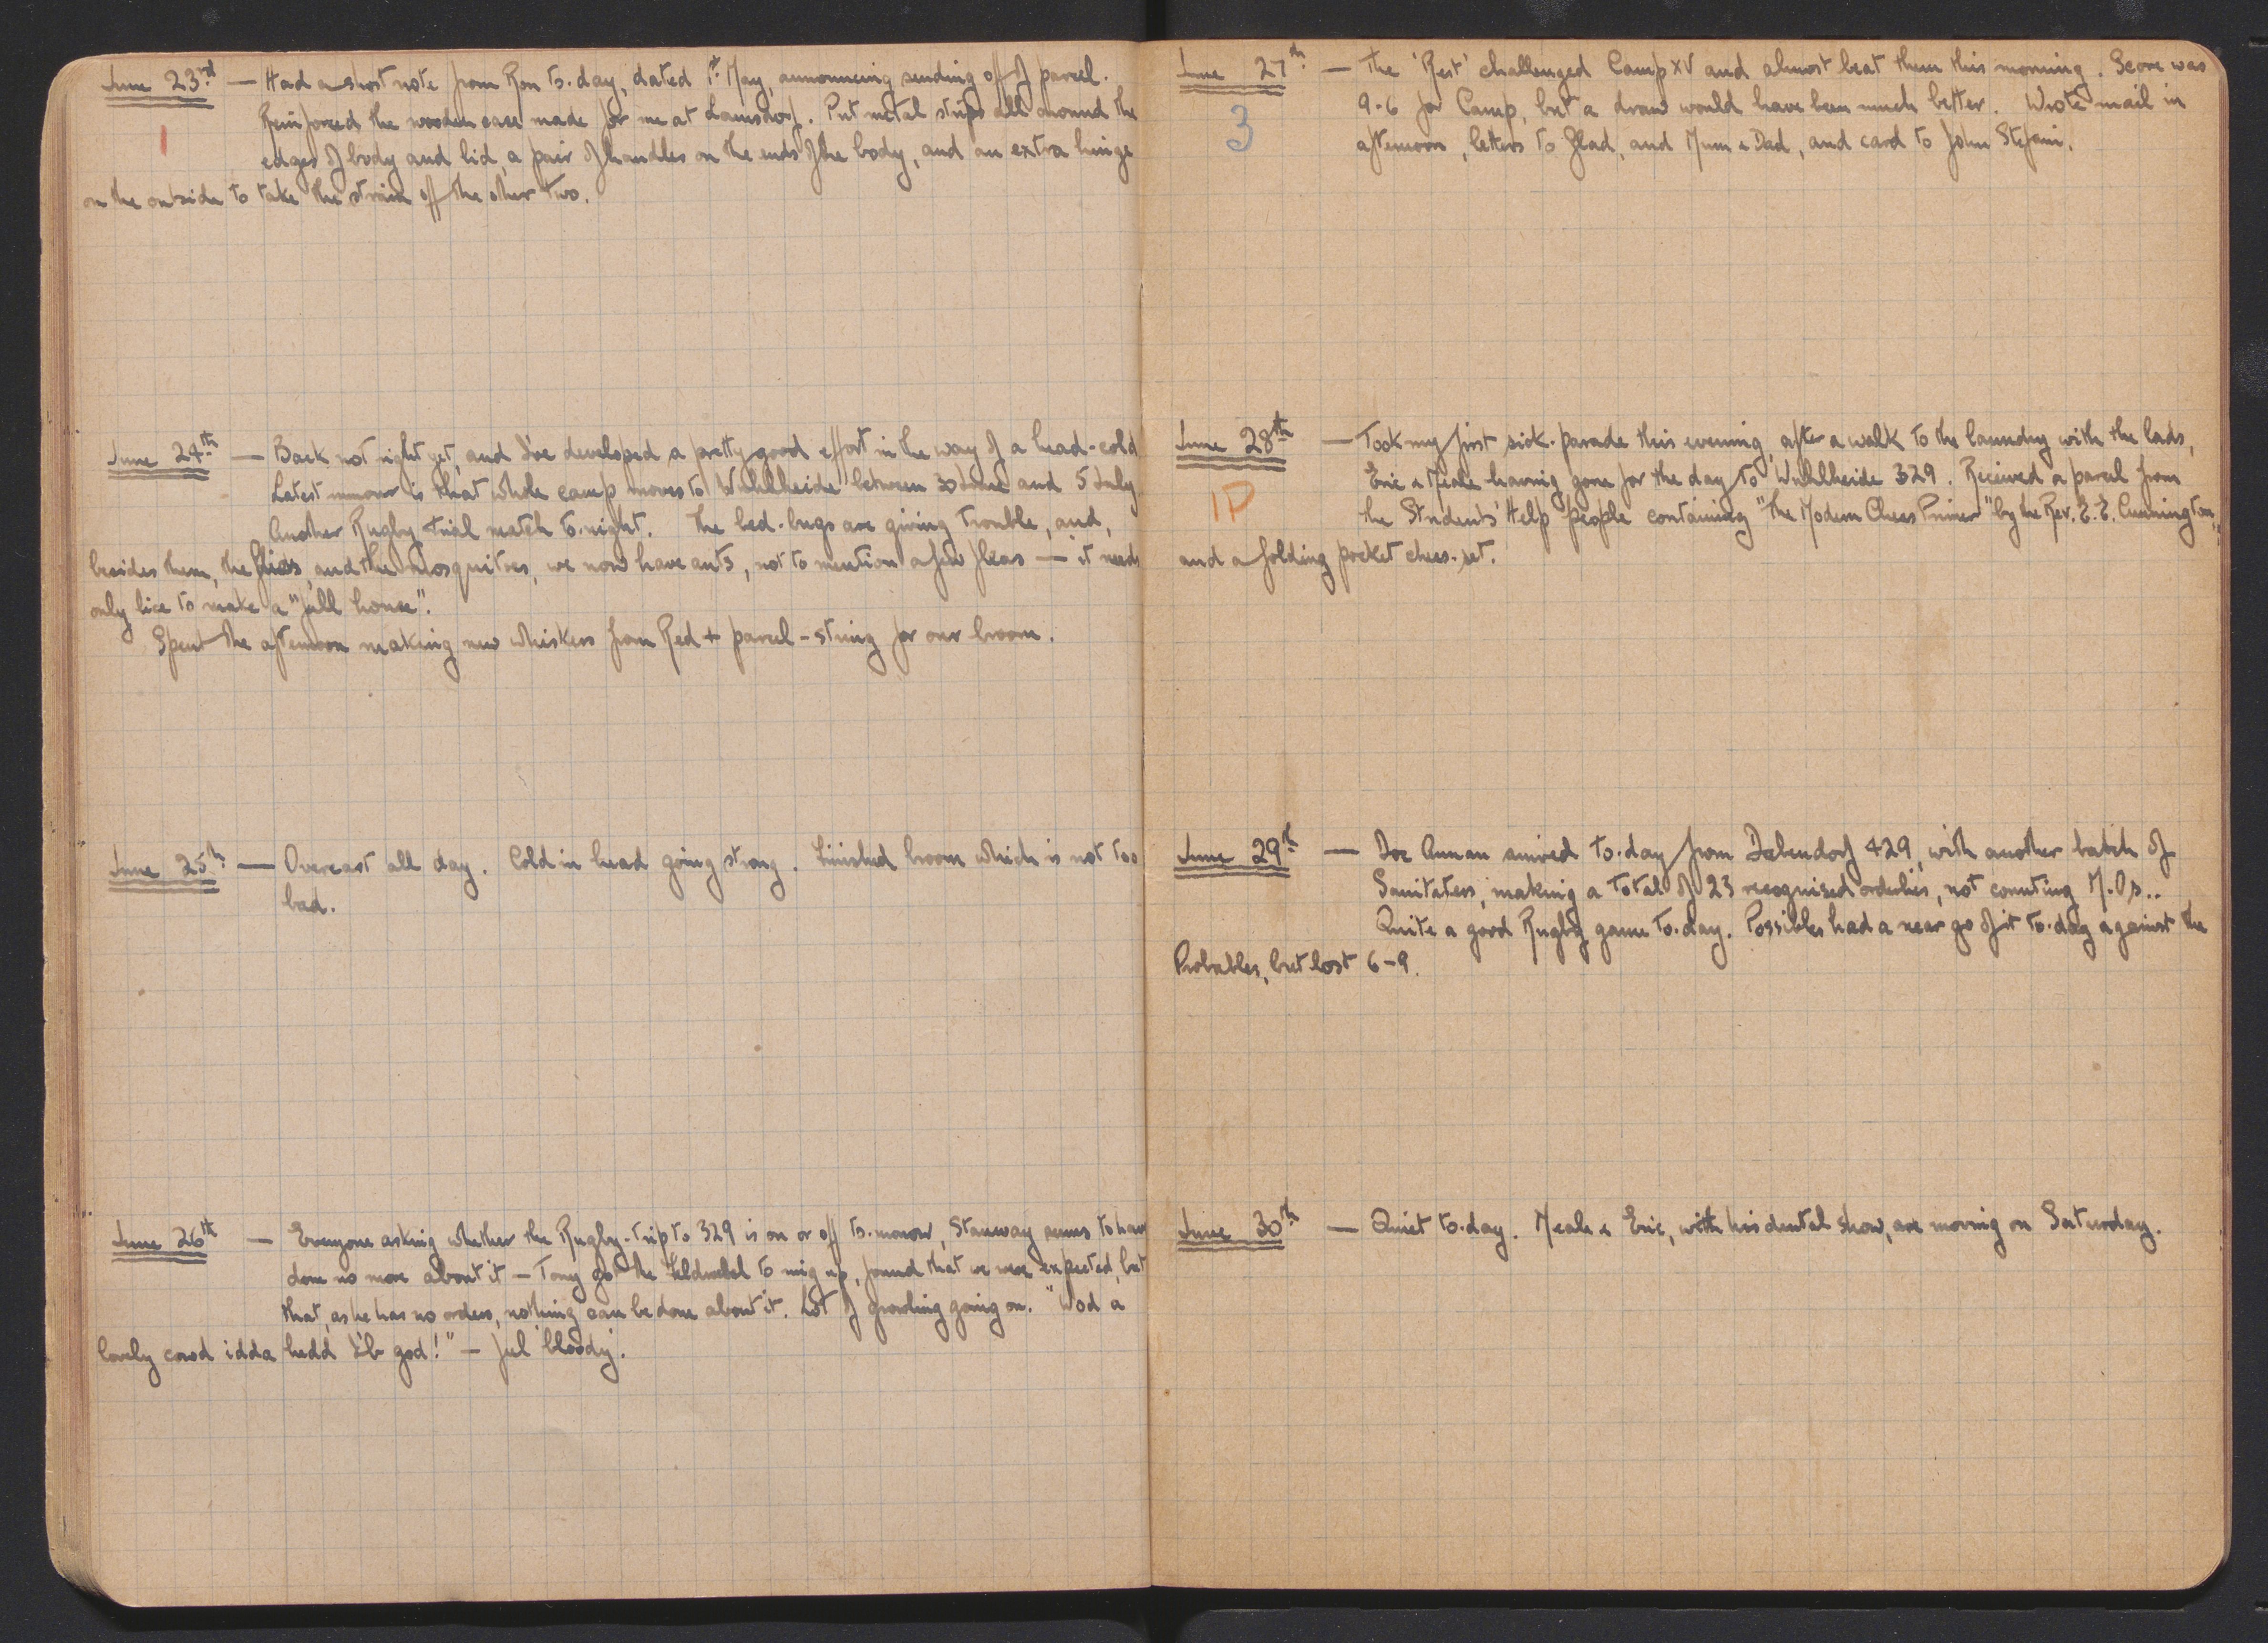 June 23rd — Had a short note from Ron to-day, dated 1st May, announcing sending off of parcel.
1
Reinforced the wooden case made for me at Lamsdorf. Put metal strips all around the
edges of body and lid, a pair of handles on the ends of the body, and an extra hinge
on the outside to take the strain off the other two.
June 24th — Back not right yet, and I've developed a pretty good effort in the way of a head-cold
Latest rumour is that whole camp moves to Wuhlheide between 30 June and 5 July
Another Rugby trial match to-night. The bed-bugs are giving trouble, and,
besides them, the flies, and the mosquitoes, we now have ants, not to mention a few fleas — it needs
only lice to make a "full house".
Spent the afternoon making new whiskers from Red + parcel-string for our broom.
June 25th — Overcast all day. Cold in head going strong. Finished broom which is not too
bad.
June 26th — Everyone asking whether the Rugby-trip to 329 is on or off to-morrow, Stanway seems to have
done no more about it — Tony got the Feldwebel to ring up, found that we were expected, but
that, as he has no orders, nothing can be done about it. Lot of growling going on. "Wod a
lovely cowd idda hedd I'b god!" — feel 'bloody'.
June 27th — The 'Rest' challenged Camp XV and almost beat them this morning. Score was
3
9-6 for Camp, but a draw would have been much better. Wrote mail in
afternoon, letters to Glad, and Mum & Dad, and card to John Stefani.
June 28th — Took my first sick-parade this evening, after a walk to the laundry with the lads,
1P
Eric & Meale having gone for the day to Wuhlheide 329. Received a parcel from
the Students' Help people containing "The Modern Chess Primer" by the Rev. E. E. Cunnington,
and a folding pocket chess-set.
June 29th — Doc Annan arrived to-day from Dabendorf 429, with another batch of
Sanitaters, making a total of 23 recognised orderlies, not counting M.O.s..
Quite a good Rugby game to-day. Possibles had a near go of it to-day against the
Probables, but lost 6-9.
June 30th — Quiet to-day. Meale & Eric, with his dental show, are moving on Saturday.